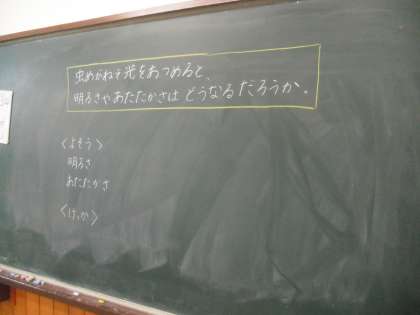 虫めがねで光をあつめると、
明るさやあたたかさはどうなるだろうか。
〈よそう〉
明るさ
あたたかさ
〈けっか〉